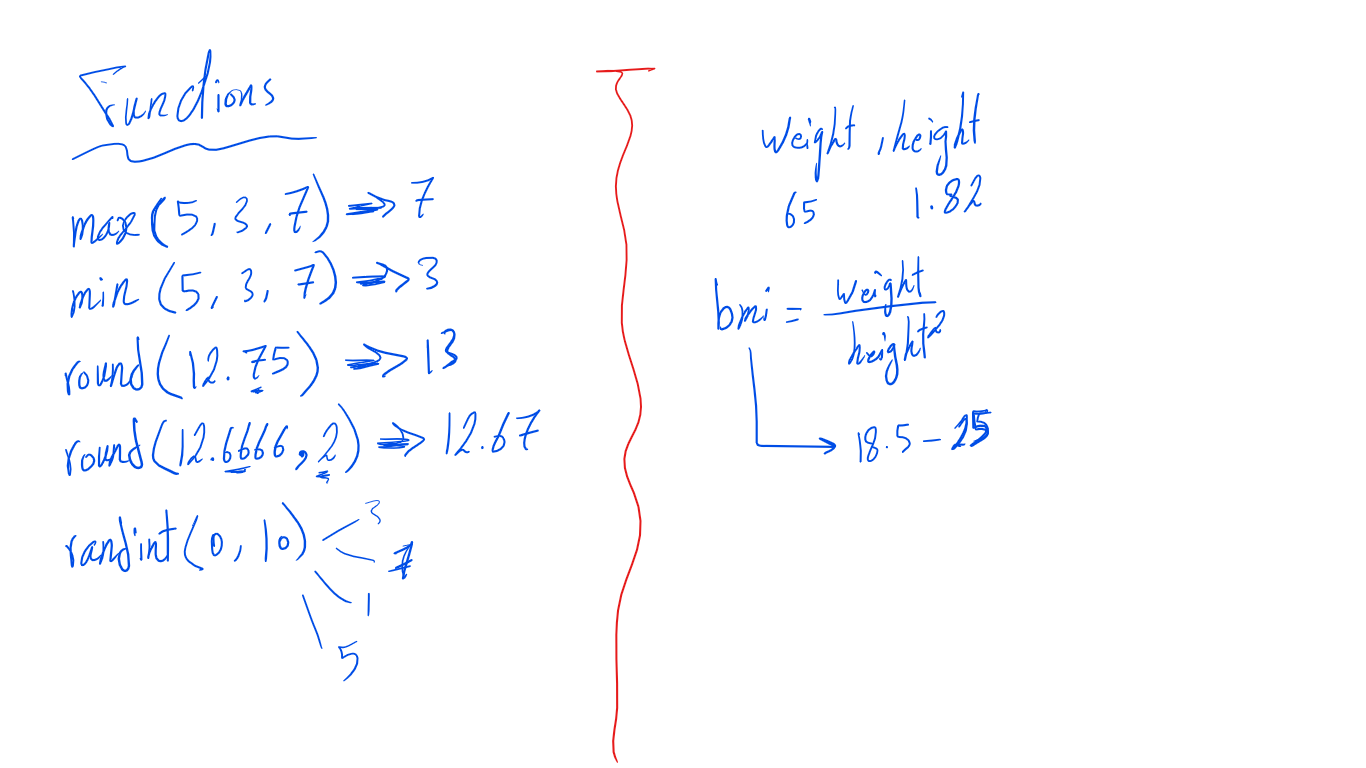 Functions
max(5, 3, 7) => 7
min (5, 3, 7) => 3
round(12.75) => 13
round(12.6666, 2) => 12.67
randint(0, 10)
3
7
1
5
weight, height
65 1.82
bmi = weight
height²
18.5 - 25